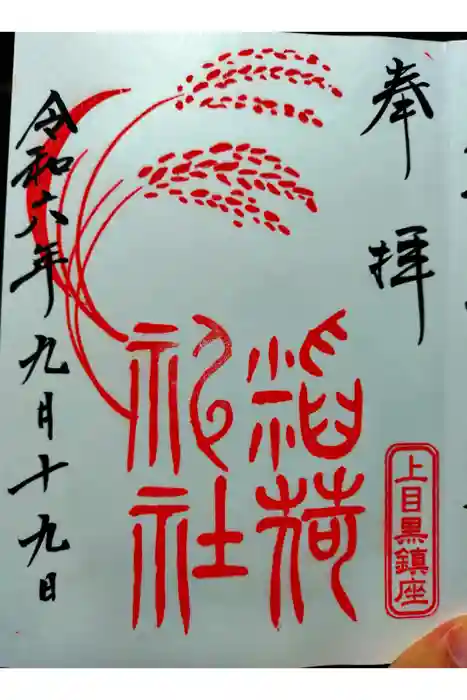 奉拝
上目黒鎮座
稲荷
神社
令和六年九月十九日